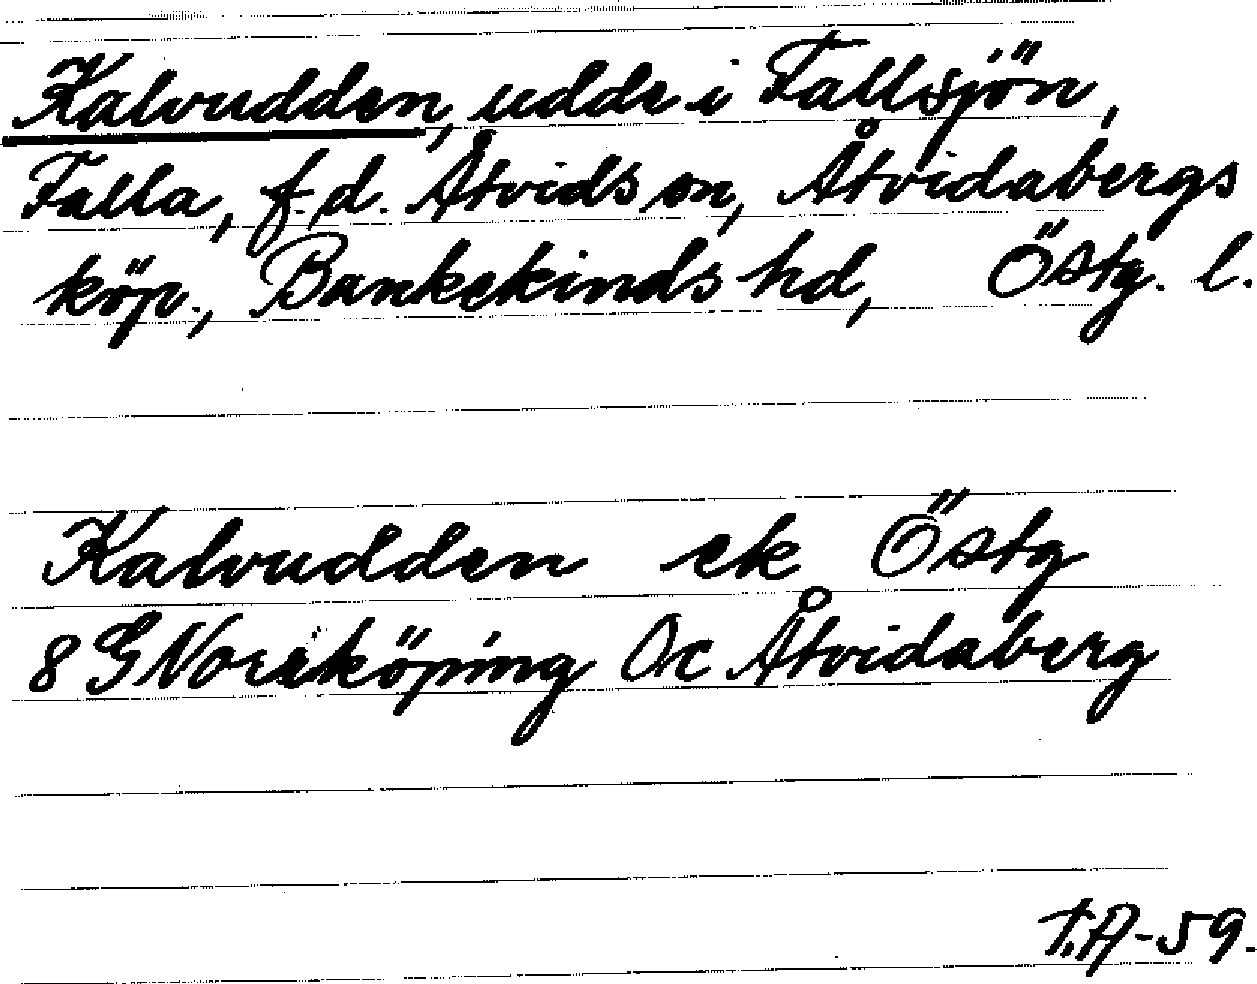 Kalvudden, udde i Fallsjön,
Falla, f.d. Åtvids sn, Åtvidabergs
köp., Bankekinds hd, Östg. l.
Kalvudden ek Östg
8 G Norrköping Oc Åtvidaberg
T.A-59.